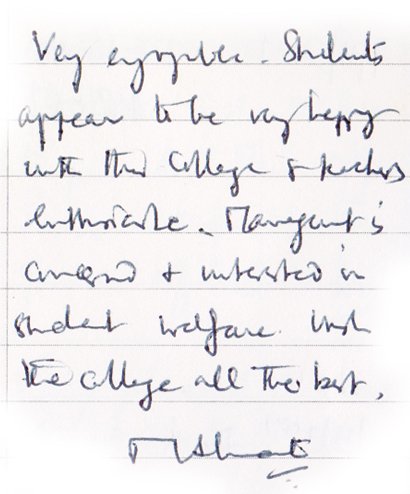 Very enjoyable. Students
appear to be very happy
with their College & teachers
enthusiastic. Management is
concerned & interested in
student welfare. Wish
the college all the best.